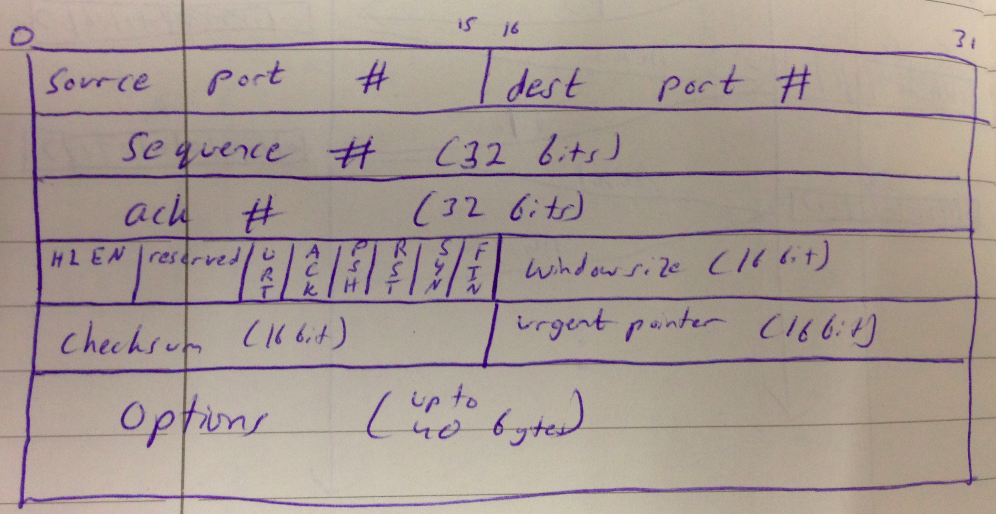 0 15 16 31
Source port # dest port #
Sequence # (32 bits)
ack # (32 bits)
HLEN reserved URT ACK PSH RST SYN FIN window size (16 bit)
Checksum (16 bit) urgent pointer (16 bit)
Options (up to 40 bytes)